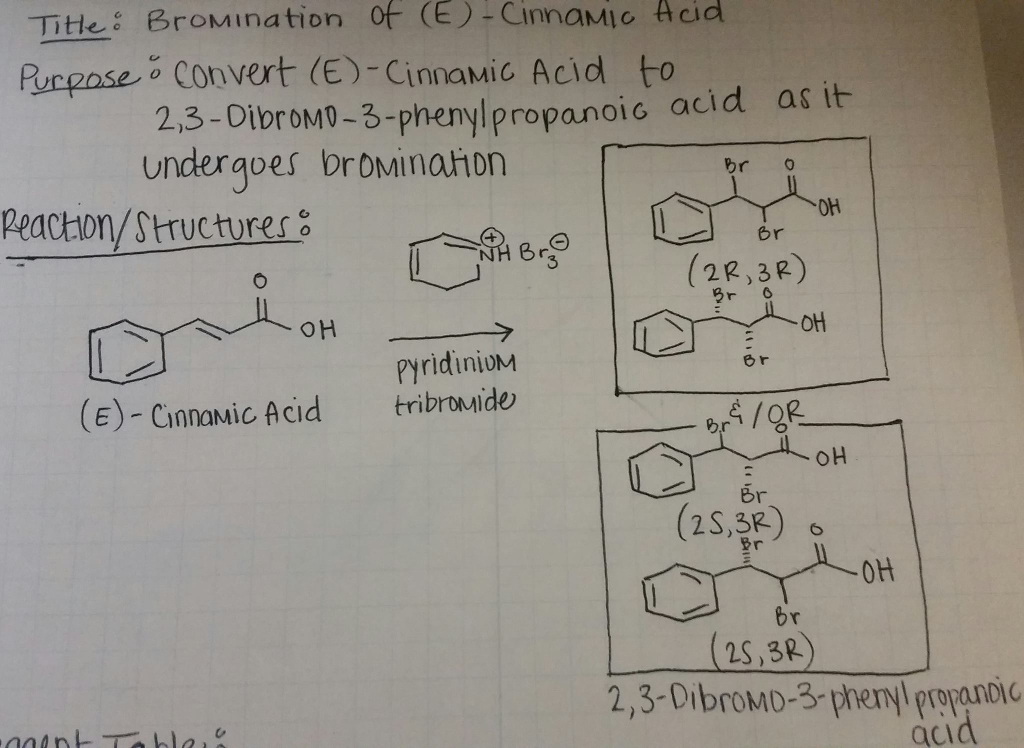 Title: Bromination of (E)-Cinnamic Acid
Purpose: Convert (E)-Cinnamic Acid to
2,3-Dibromo-3-phenylpropanoic acid as it
undergoes bromination
Reaction/Structures:
O
OH
(E)-Cinnamic Acid
⊕
NH Br3⊖
pyridinium
tribromide
Br O
OH
Br
(2R,3R)
Br O
OH
Br
& / OR
Br O
OH
Br
(2S,3R)
Br O
OH
Br
(2S,3R)
2,3-Dibromo-3-phenylpropanoic
acid
Table: